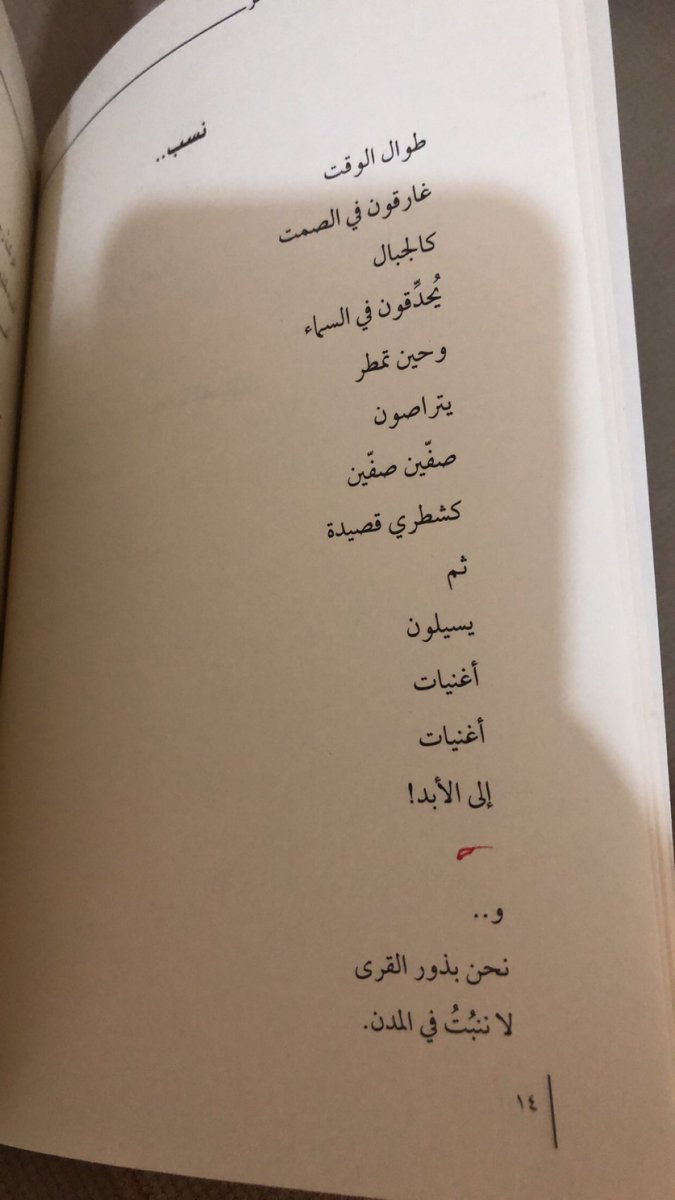 نسب..
طوال الوقت
غارقون في الصمت
كالجبال
يُحدِّقون في السماء
وحين تمطر
يتراصون
صفّين صفّين
كشطري قصيدة
ثم
يسيلون
أغنيات
أغنيات
إلى الأبد!
و..
نحن بذور القرى
لا ننبُتُ في المدن.
١٤